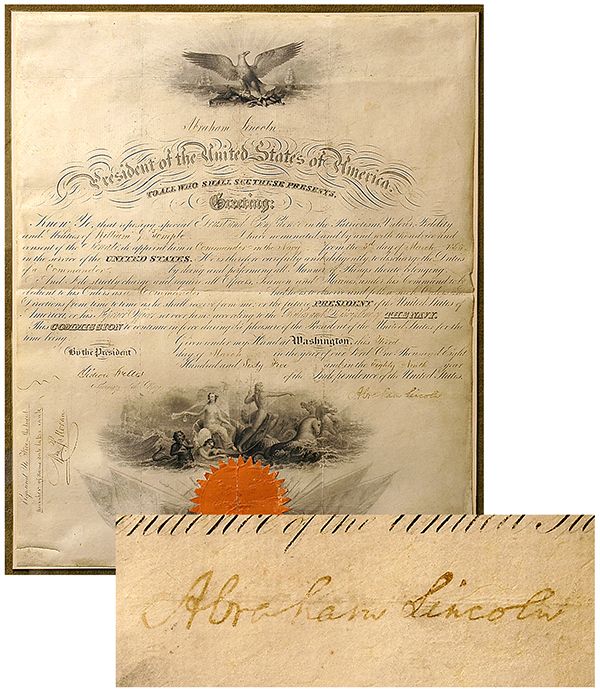 Abraham Lincoln
President of the United States of America.
TO ALL WHO SHALL SEE THESE PRESENTS,
Greeting:
Know Ye, that reposing special Trust and Confidence in the Patriotism, Valor, Fidelity
and Abilities of William Temple I have nominated and by and with the advice and
consent of the Senate do appoint him a Commander in the Navy from the 3rd of March 1865
in the service of the UNITED STATES. He is therefore carefully and diligently to discharge the Duties
of a Commander by doing and performing all Manner of Things thereto belonging.
And I do strictly charge and require all Officers, Seamen and Marines under his Command to be
obedient to his Orders as Commander And he is to observe and follow such Orders and
Directions from time to time as he shall receive from me, or the future PRESIDENT of the United States of
America, or his Superior Officer set over him, according to the Rules and Discipline of THE NAVY.
This COMMISSION to continue in force during the pleasure of the President of the United States for the
time being.
Given under my Hand at Washington, this Third
By the President
day of March in the year of our Lord One Thousand Eight
Hundred and Sixty Five and in the Eighty Ninth year
of the Independence of the United States.
Gideon Welles
Secretary of the Navy
Abraham Lincoln
endence of the United Sta
Abraham Lincoln